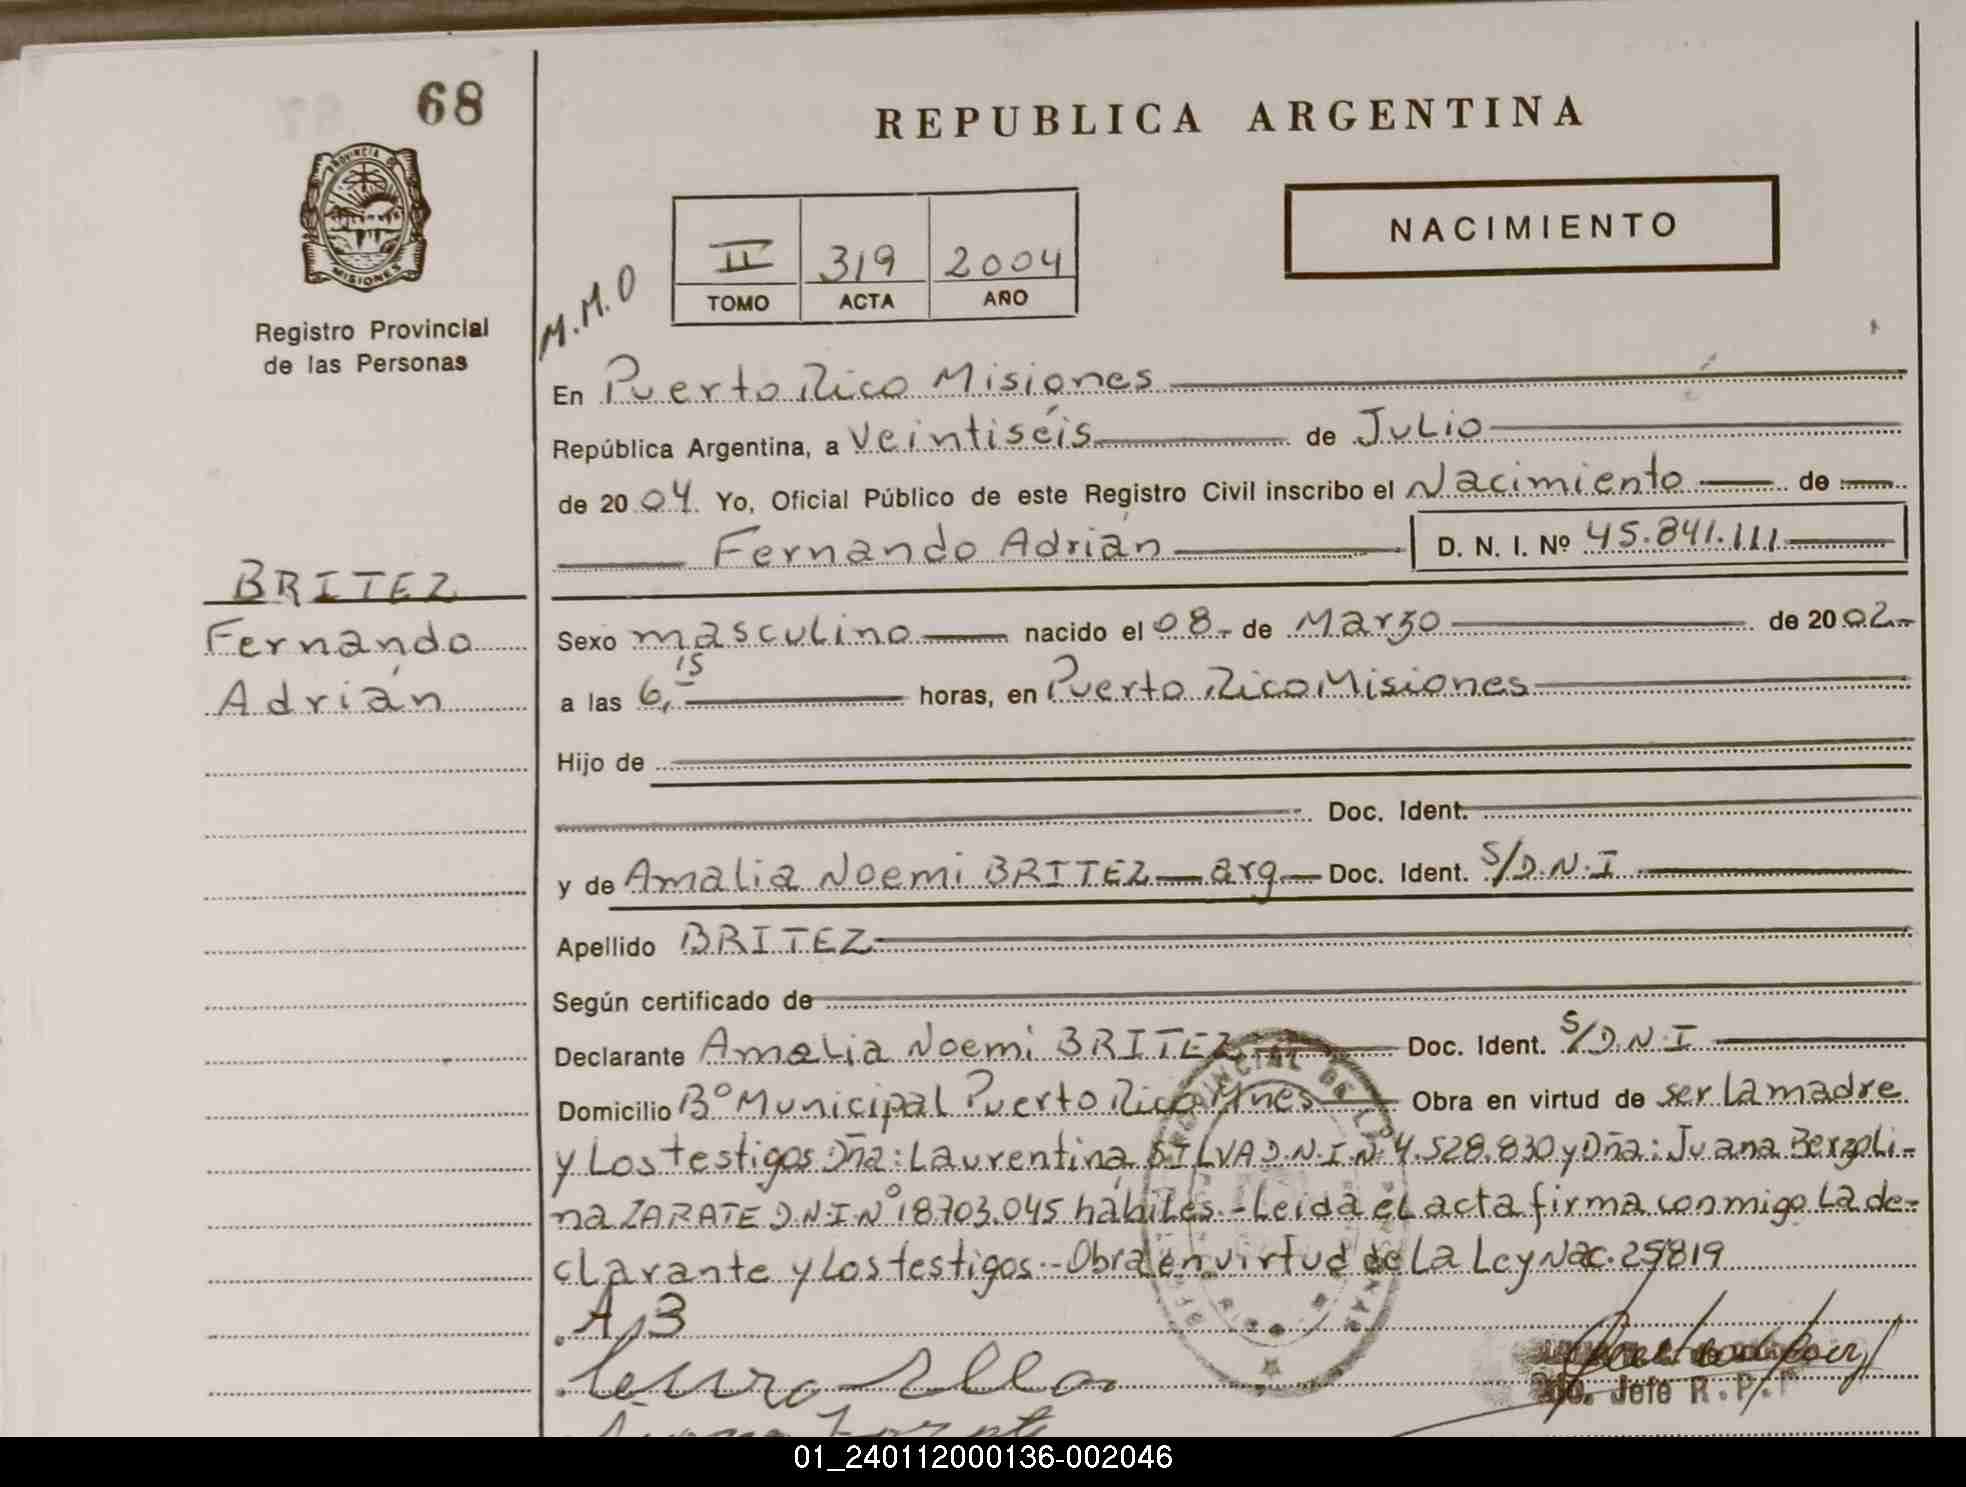 68
REPUBLICA ARGENTINA
PROVINCIA DE
MISIONES
Registro Provincial
de las Personas
NACIMIENTO
II 319 2004
TOMO ACTA AÑO
M.M.O
En Puerto Rico Misiones
República Argentina, a veintiséis de Julio
de 2004. Yo, Oficial Público de este Registro Civil inscribo el Nacimiento de
Fernando Adrián D. N. I. Nº 45.841.111
BRITEZ
Fernando
Adrián
Sexo masculino nacido el 08 de Marzo de 2002
a las 6,15 horas, en Puerto Rico Misiones
Hijo de
Doc. Ident.
y de Amalia Noemi BRITEZ arg Doc. Ident. S/D.N.I
Apellido BRITEZ
Según certificado de
Declarante Amalia Noemi BRITEZ Doc. Ident. S/D.N.I
Domicilio Bº Municipal Puerto Rico Mnes Obra en virtud de ser la madre
y Los testigos Dña: Laurentina SILVA D.N.I.Nº 4.528.830 y Dña: Juana Berzoli-
na ZARATE D.N.I Nº 18.703.045 hábiles.- Leida el acta firma conmigo la de-
clarante y Los testigos.- Obra en virtud de La Ley Nac. 25819
A B
Jefe R.P.
01_240112000136-002046